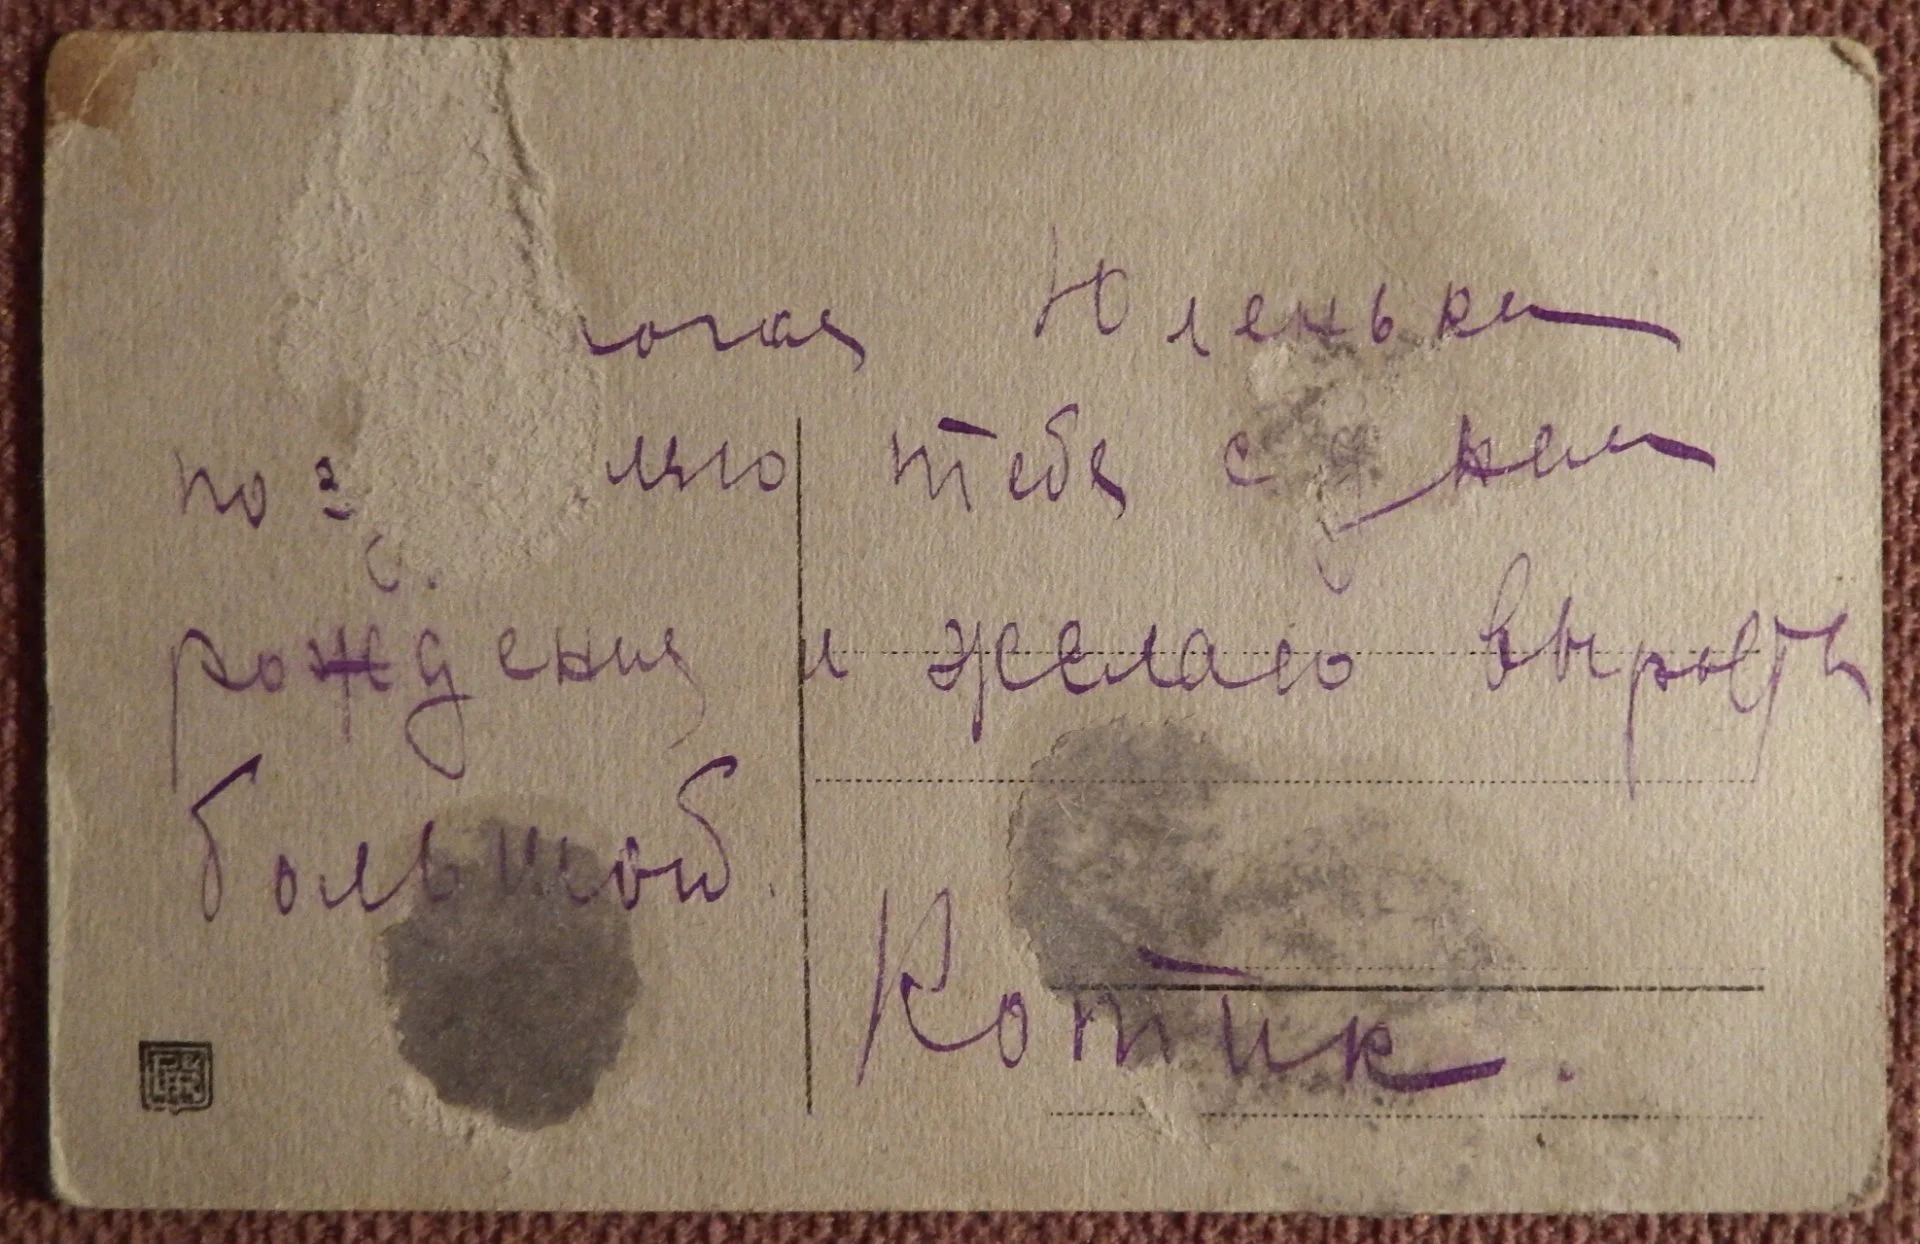 рогая Юленька
поз ляю тебя с днем
рождения и желаю вырость
большой.
Котик.